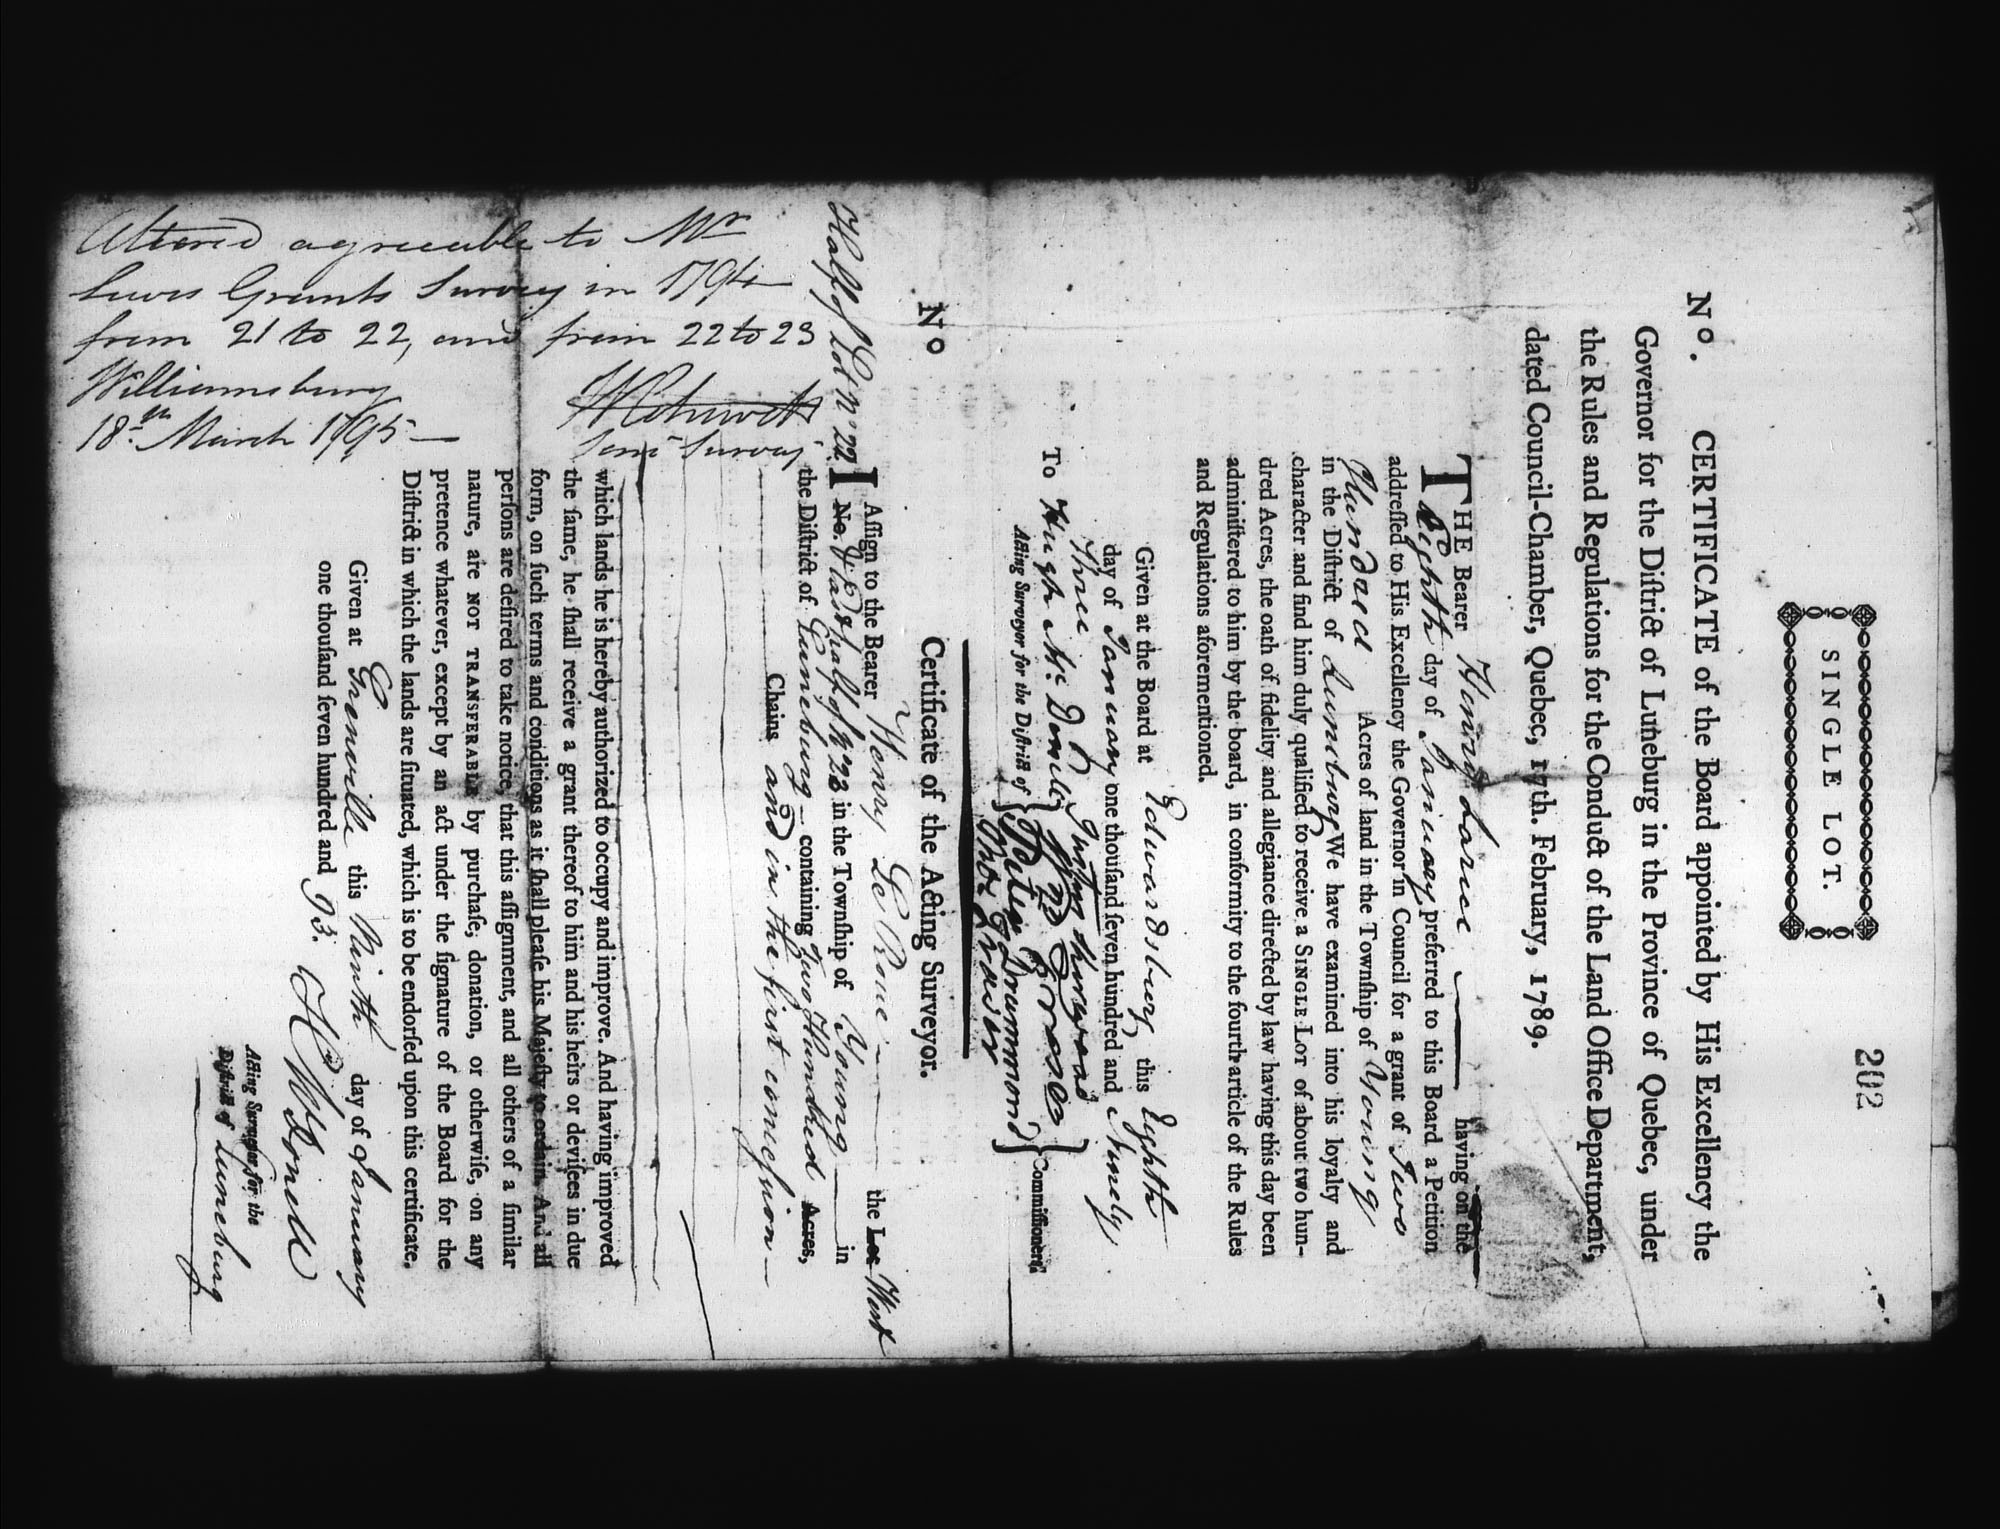 202
SINGLE LOT.
No. CERTIFICATE of the Board appointed by His Excellency the
Governor for the Diſtrict of Luneburg in the Province of Quebec, under
the Rules and Regulations for the Conduct of the Land Office Department,
dated Council-Chamber, Quebec, 17th. February, 1789.
THE Bearer Henry Larue having on the
Eighth day of January preferred to this Board a Petition
addreſſed to His Excellency the Governor in Council for a grant of Two
Hundred Acres of land in the Townſhip of Young
in the Diſtrict of Luneburg We have examined into his loyalty and
character and find him duly qualified to receive a SINGLE LOT of about two hun-
dred Acres, the oath of fidelity and allegiance directed by law having this day been
adminiſtered to him by the board, in conformity to the fourth article of the Rules
and Regulations aforementioned.
Given at the Board at Edwardsburg this Eighth
day of January one thouſand ſeven hundred and Ninety
Three
Justus Sherwood
To Hugh McDonell
Acting Surveyor for the Diſtrict of
Peter Drummond
Thos Fraser
Commiſſioners
Certificate of the Acting Surveyor.
No
I Aſſign to the Bearer Henry La Rue the Lot West
Half of Lot No 22
No. & East half of No 23 in the Townſhip of Young in
the Diſtrict of Luneburg containing Two Hundred Acres,
Chains and in the first concession
which lands he is hereby authorized to occupy and improve. And having improved
the ſame, he ſhall receive a grant thereof to him and his heirs or deviſees in due
form, on ſuch terms and conditions as it ſhall pleaſe his Majeſty to ordain. And all
perſons are deſired to take notice, that this aſſignment, and all others of a ſimilar
nature, are NOT TRANSFERABLE by purchaſe, donation, or otherwiſe, on any
pretence whatever, except by an act under the ſignature of the Board for the
Diſtrict in which the lands are ſituated, which is to be endorſed upon this certificate.
Given at Grenville this Ninth day of January
one thouſand ſeven hundred and 93.
H McDonell
Acting Surveyor for the
Diſtrict of Luneburg
Altered agreeable to Mr
Lewis Grants Survey in 1794
from 21 to 22, and from 22 to 23
Williamsburg
18th March 1795